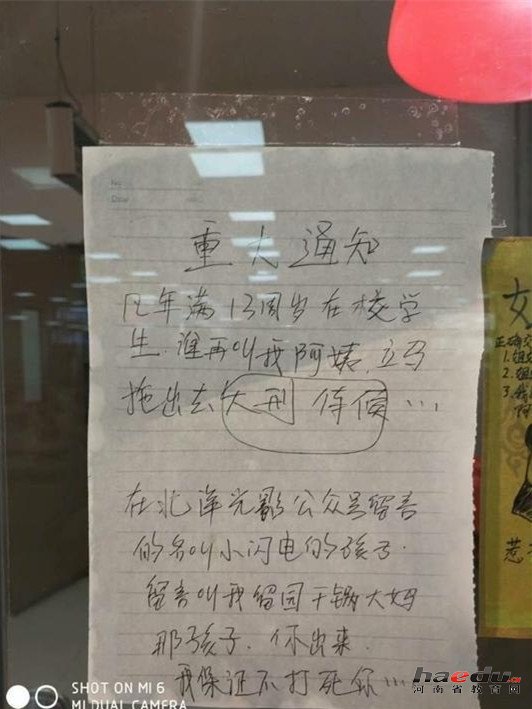 重大通知
凡年满13周岁在校学
生.谁再叫我阿姨.立马
拖出去大刑 侍候…
在北洋光影公众号留言
的名叫小闪电的孩子.
留言叫我留园干锅大妈
那孩子.你出来.
我保证不打死你…
女
正确交
1.
2.
3.
惹
SHOT ON MI 6
MI DUAL CAMERA
haedu.cn
河南省教育网